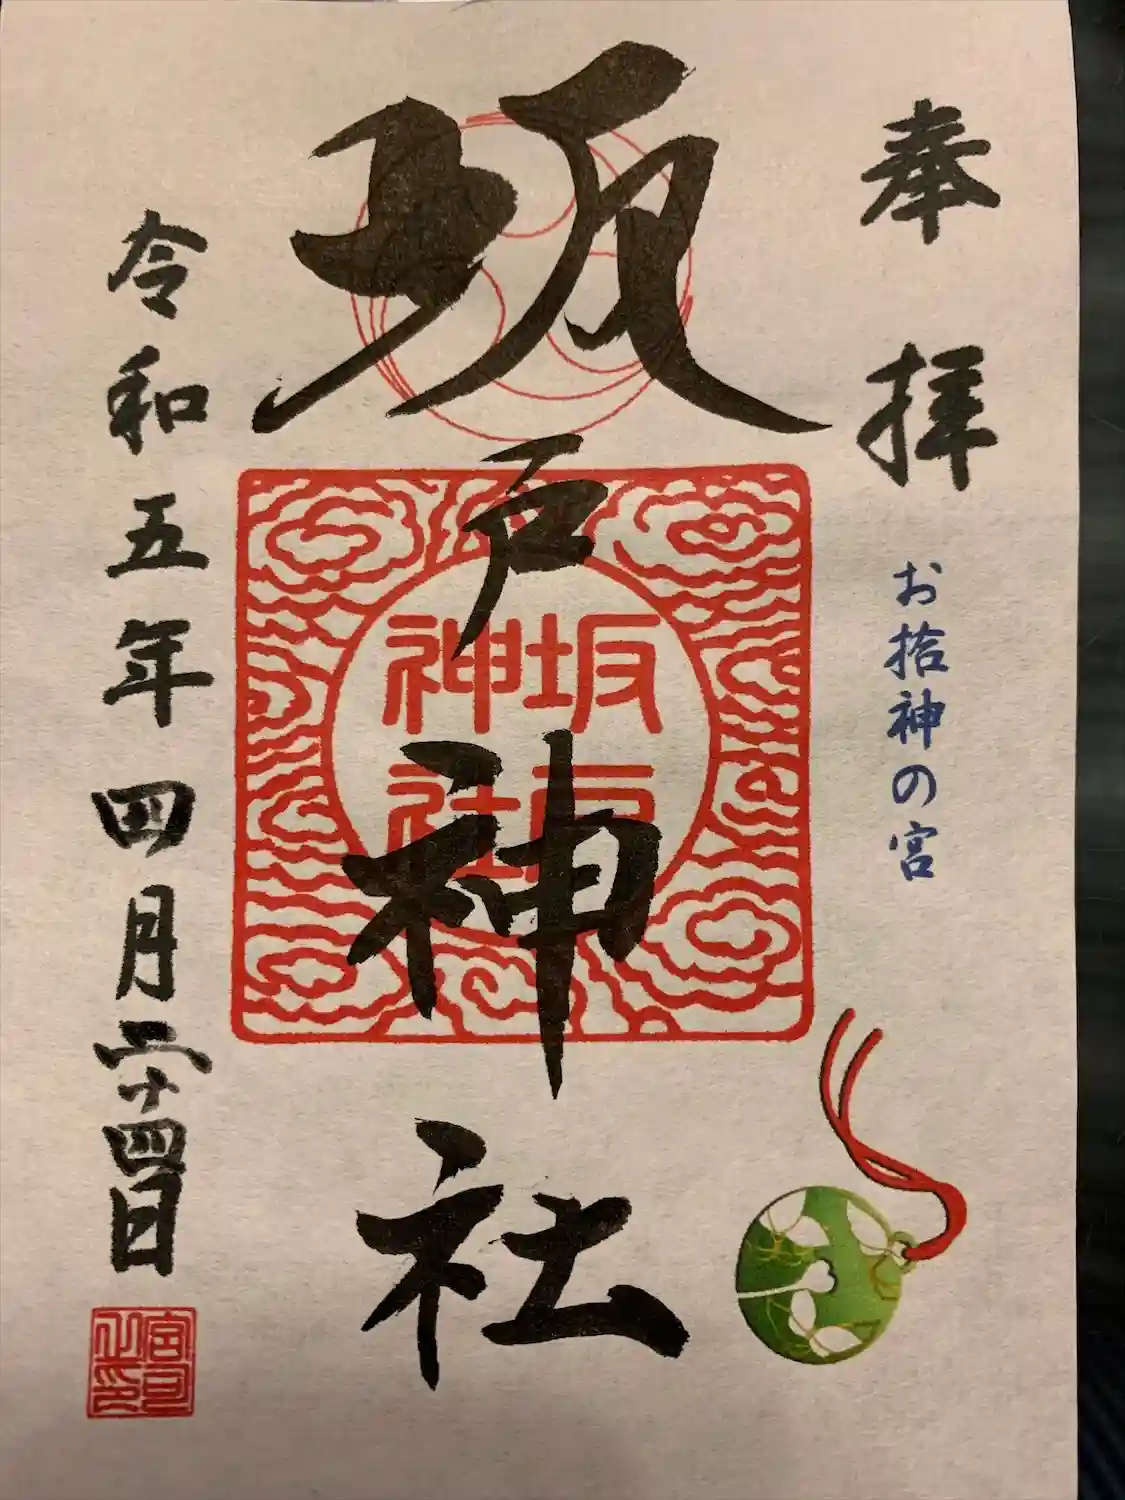 奉拝
お拾神の宮
坂戸神社
坂戸
神社
令和五年四月二十四日
宮司之印